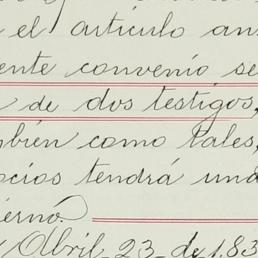 el artículo an
ente convenio se
de dos testigos,
mbién como tales,
ocios tendrá una
ierno.
Abril 23 de 183